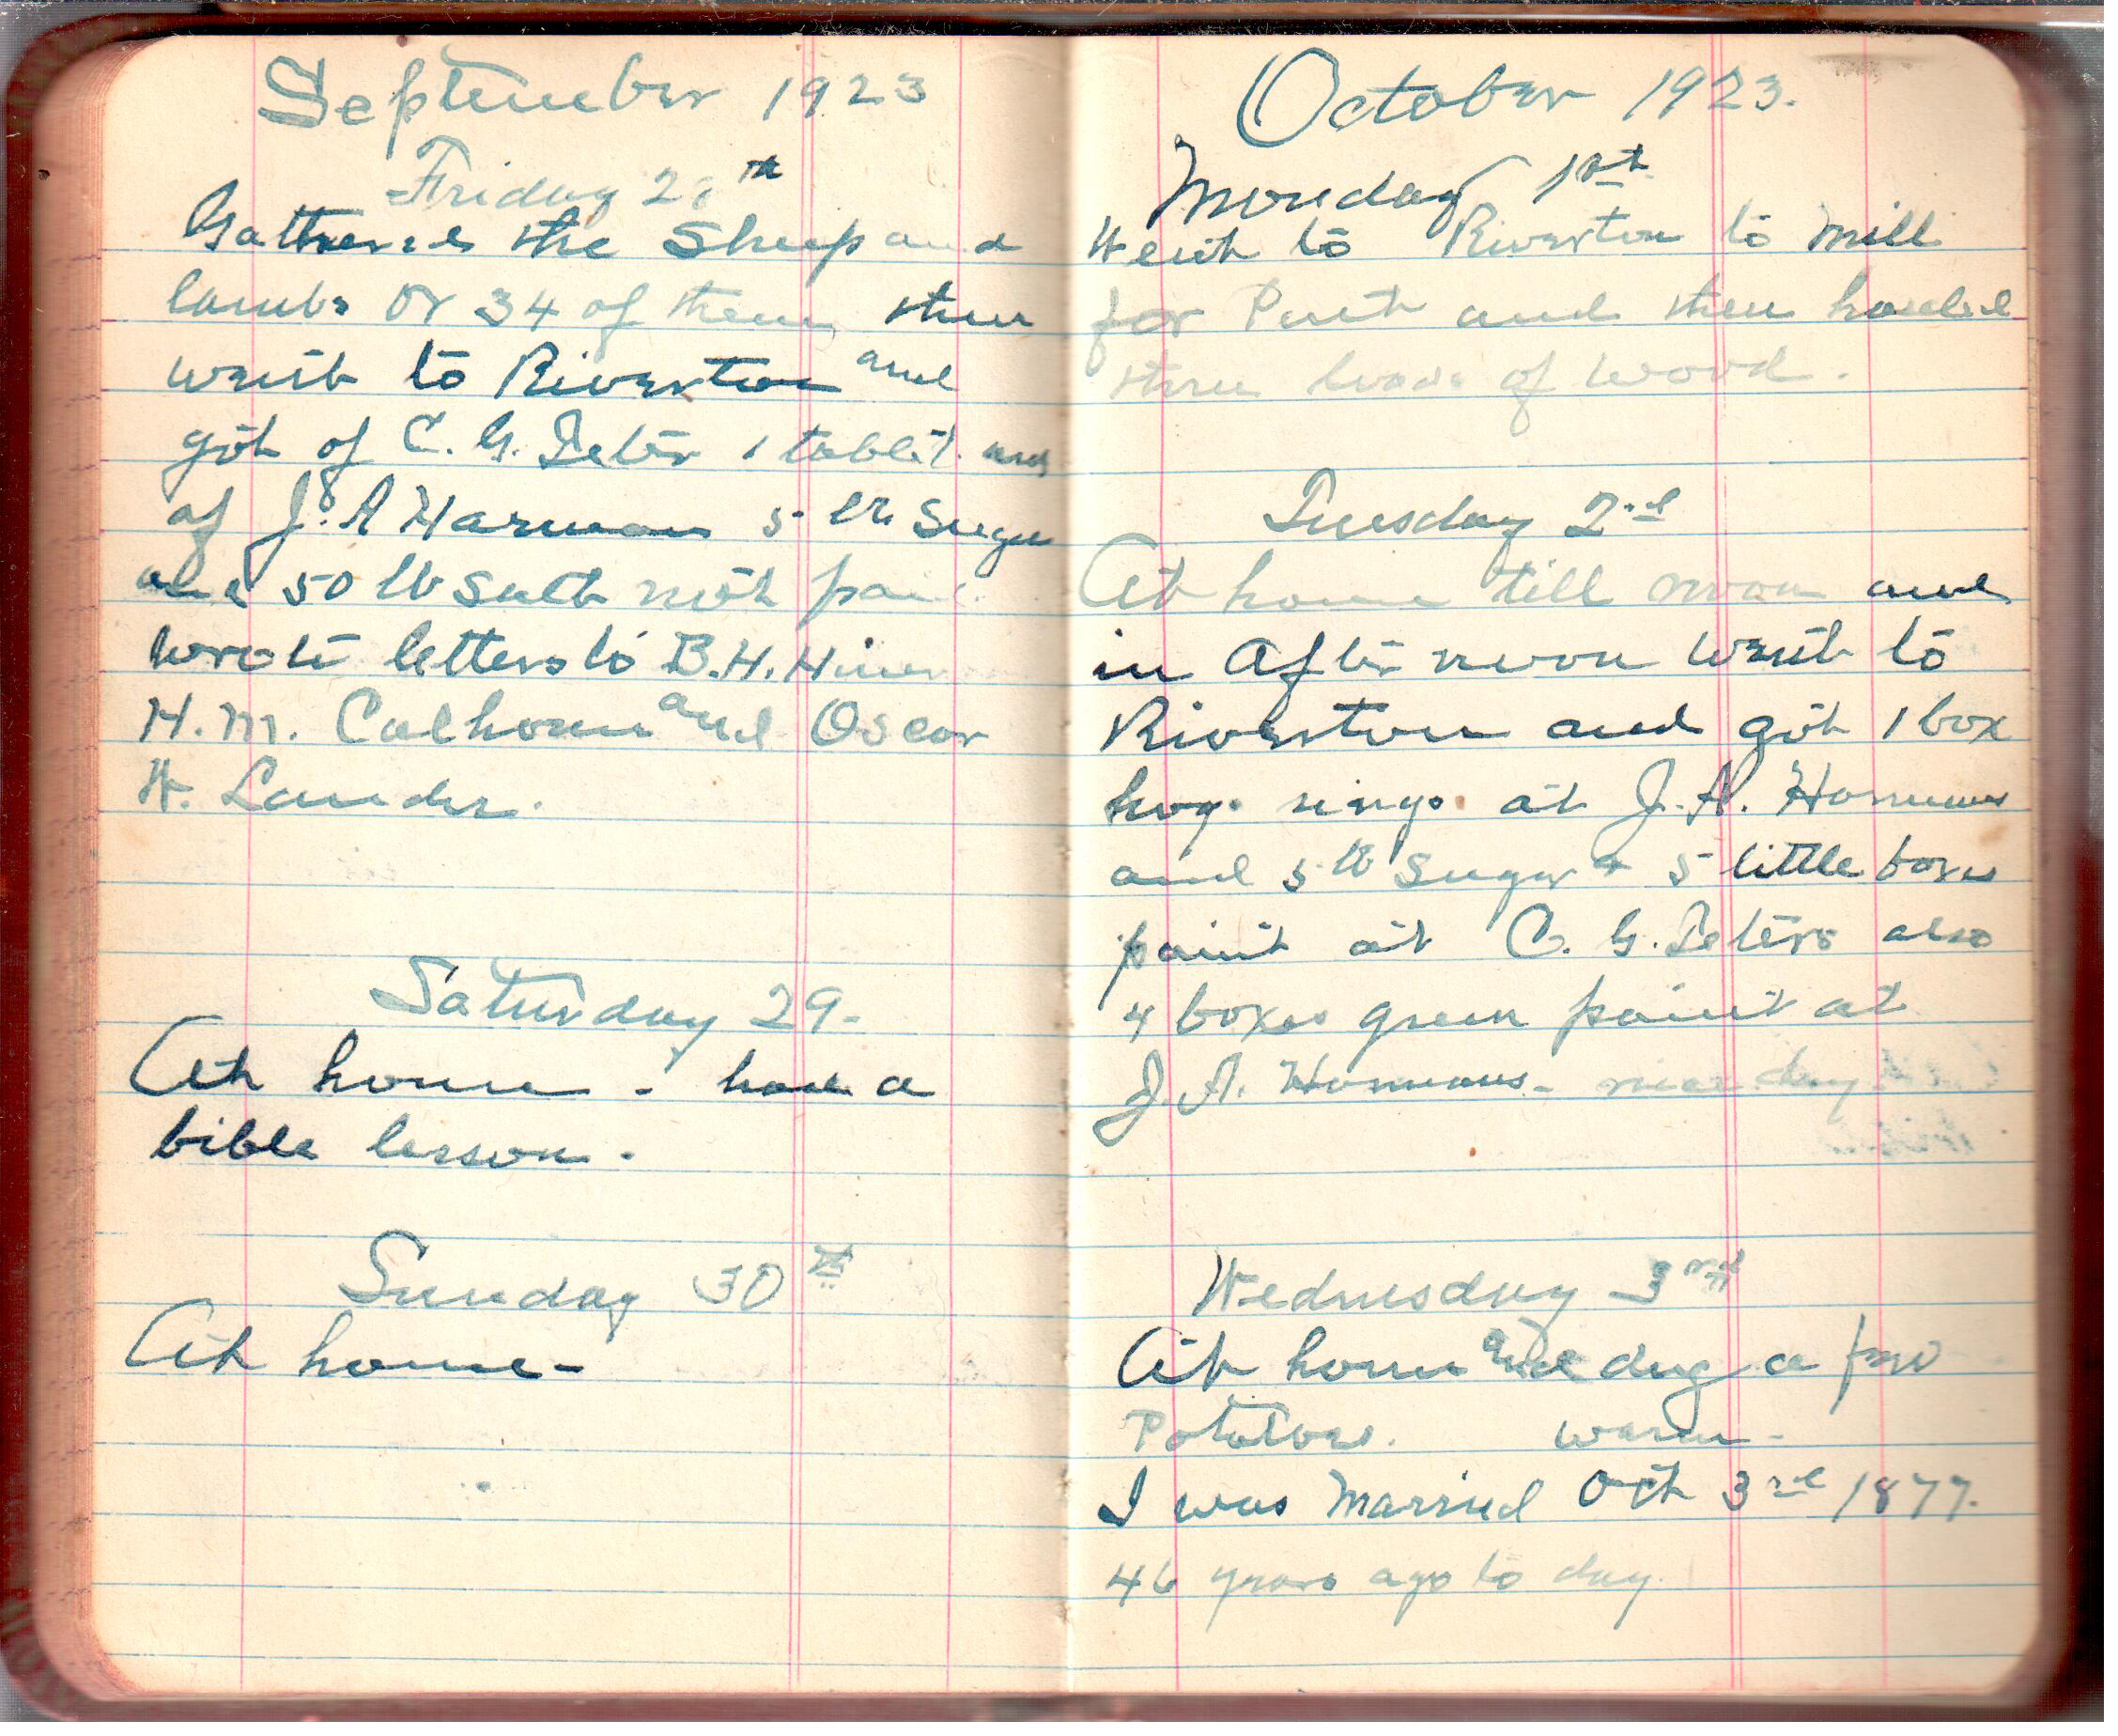 September 1923
Friday 28th
Gathered the Sheep and
lambs or 34 of them then
went to Riverton and
got of C. G. Peter 1 tablet and
of J. A Harman 5 lb Sugar
and 50 lb Salt not paid
wrote letters to B. H. Hiner
H. M. Calhoun and Oscar
W. Lander.
Saturday 29-
At home - had a
bible lesson.
Sunday 30th
At home-
October 1923.
Monday 1st
Went to Riverton to Mill
for and then hauled
three loads of wood.
Tuesday 2nd
At home till noon and
in After noon went to
Riverton and got 1 box
hogs rings at J. A. Harmans
and 5 lb Sugar & 5 little boxes
paint at C. G. Peters also
4 boxes green paint at
J. A. Harmans- nice day
Wednesday 3rd
At home and dug a few
Potatoes. warm-
I was Married Oct 3rd 1877.
46 years ago to day